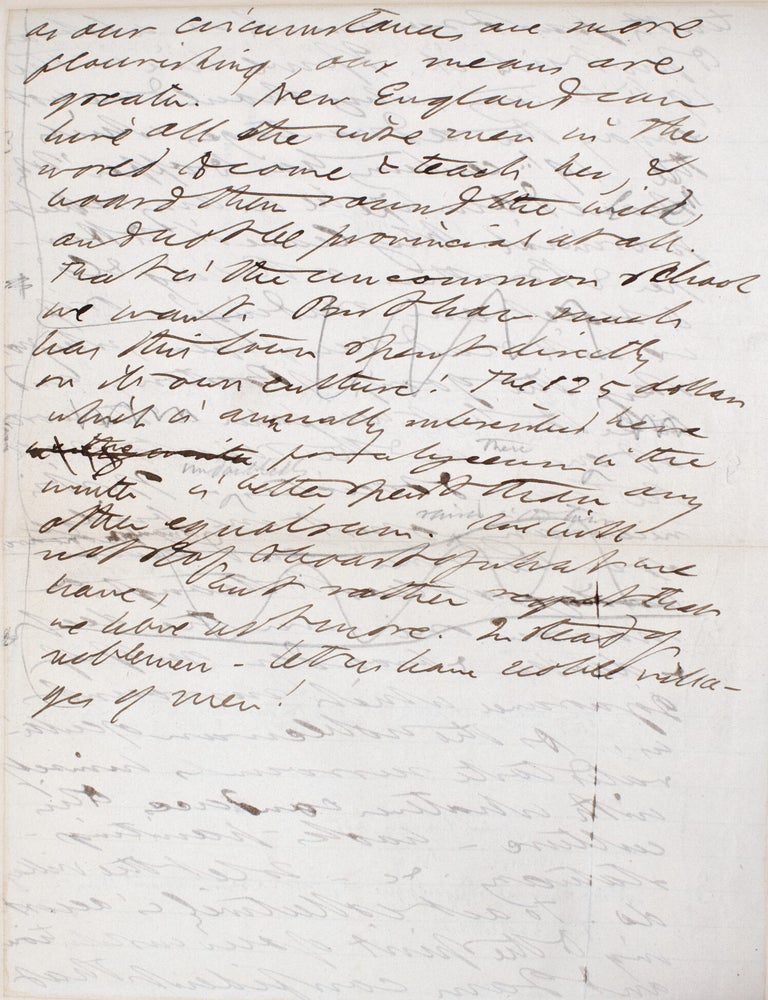 as our circumstances are more
flourishing, our means are
greater. New England can
hire all the wise men in the
world to come & teach her, &
board them round the while,
and not be provincial at all.
That is the uncommon school
we want. But how much
has this town spent directly
on its own culture? The 125 dollars
which is annually subscribed here
for a lyceum in the
there
winter is better spent than any
other equal sum.
not stop to boast of what we
have, but rather regret that
we have not more. Instead of
noblemen - let us have noble villa-
ges of men!